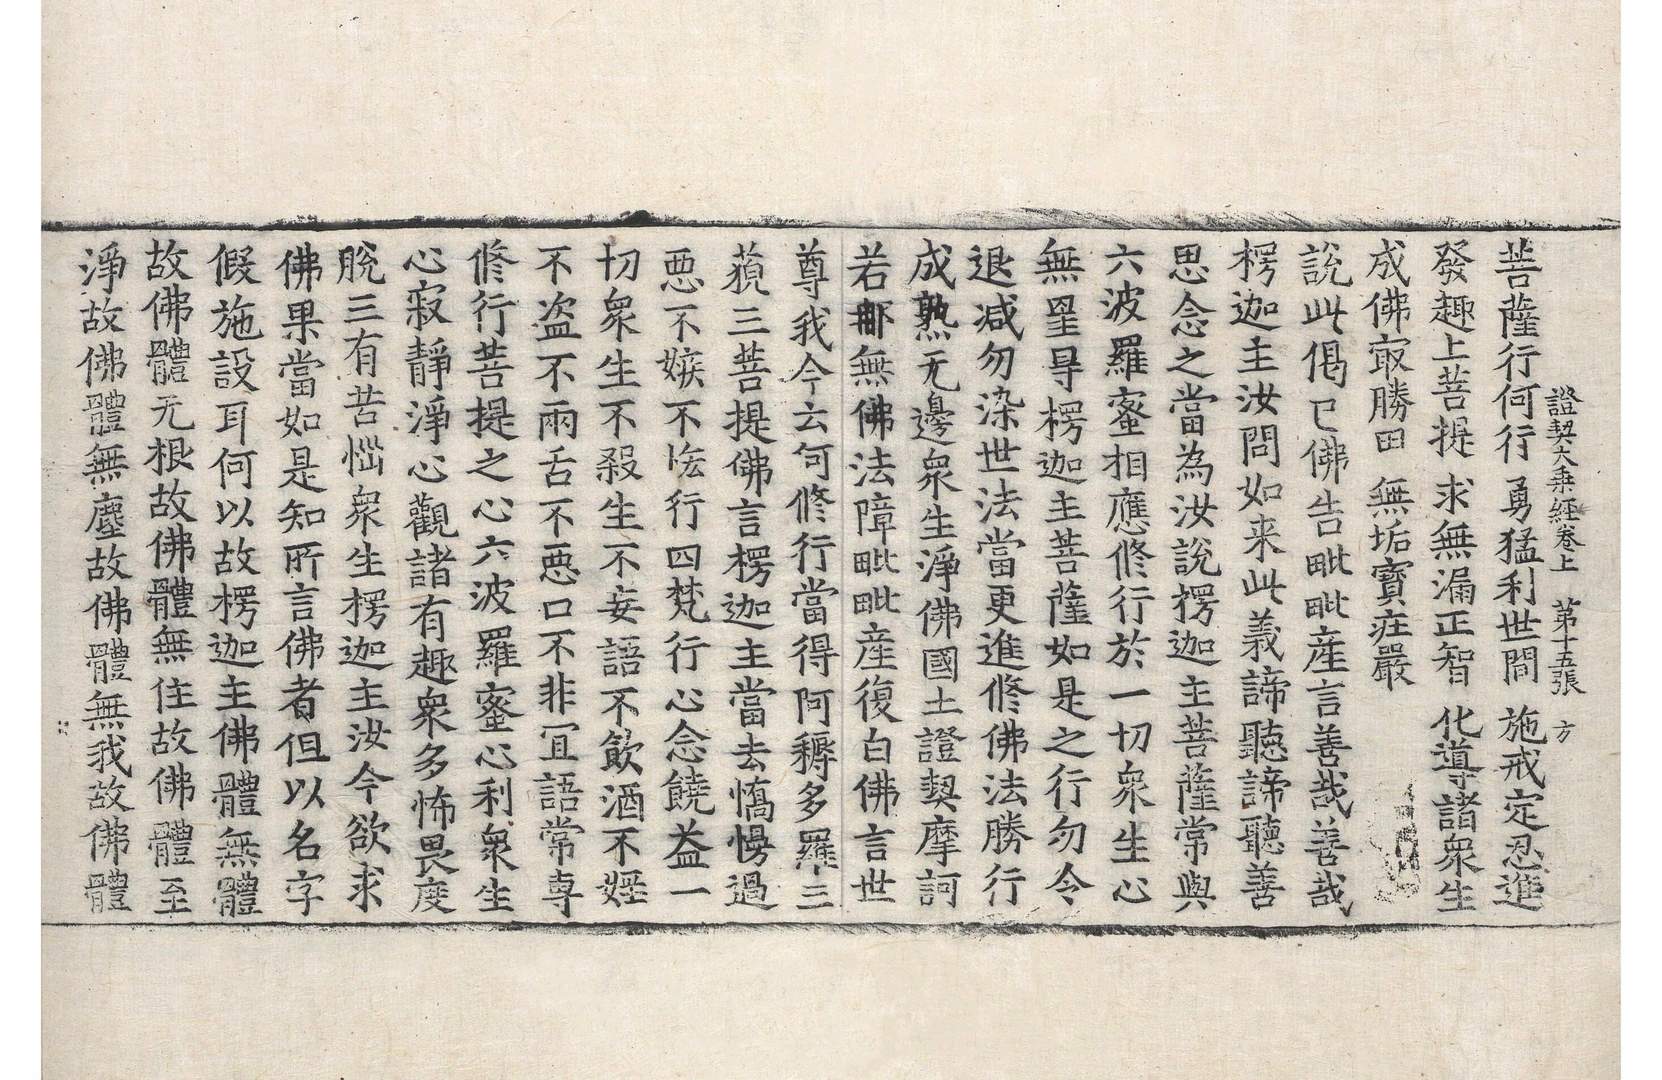 證契大乘經卷上　第十五張　方
菩薩行何行　勇猛利世間　施戒定忍進
發趣上菩提　求無漏正智　化導諸衆生
成佛㝡勝田　無垢寶莊嚴
說此偈已佛告毗毗産言善哉善哉
楞迦主汝問如来此義諦聽諦聽善
思念之當為汝說楞迦主菩薩常與
六波羅蜜相應修行於一切衆生心
無罣㝵楞迦主菩薩如是之行勿令
退减勿染世法當更進修佛法勝行
成熟无邊衆生淨佛國土證契摩訶
若那無佛法障毗毗産復白佛言世
尊我今云何修行當得阿耨多羅三
藐三菩提佛言楞迦主當去憍慢過
惡不嫉不恡行四梵行心念饒益一
切衆生不殺生不妄語不飲酒不婬
不盗不兩舌不惡口不非冝語常専
修行菩提之心六波羅蜜心利衆生
心寂靜淨心觀諸有趣衆多怖畏度
脫三有苦惱衆生楞迦主汝今欲求
佛果當如是知所言佛者但以名字
假施設耳何以故楞迦主佛體無體
故佛體无根故佛體無住故佛體至
淨故佛體無塵故佛體無我故佛體